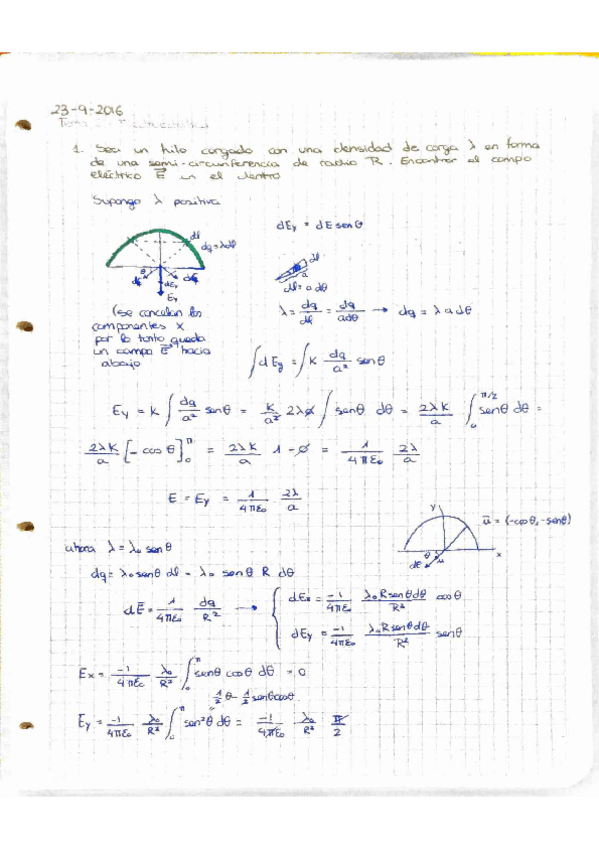 23-9-2016
1. Sea un hilo cargado con una densidad de carga λ en forma
de una semi-circunferencia de radio R. Encontrar el campo
eléctrico E⃗ en el centro
Supongo λ positiva
dEy = dE senθ
dl
dq = λdl
dl
a
dl = a dθ
θ
dE
dEy
dE
Ey
(se cancelan las
componentes x
por lo tanto queda
un campo E⃗ hacia
abajo
λ = dq/dl = dq/adθ → dq = λ a dθ
∫dEy = ∫ K dq/a² senθ
Ey = K ∫ dq/a² senθ = K/a² 2λa ∫ senθ dθ = 2λK/a ∫₀^π/2 senθ dθ =
2λK/a [-cos θ]₀^π = 2λK/a 1-0 = 1/4πε₀ 2λ/a
E = Ey = 1/4πε₀ 2λ/a
y
ū = (-cosθ, -senθ)
x
θ
dE
u
ahora λ = λ₀ senθ
dq = λ₀ senθ dl = λ₀ senθ R dθ
dE⃗ = 1/4πε₀ dq/R² →
dEx = -1/4πε₀ λ₀R senθdθ/R² cosθ
dEy = -1/4πε₀ λ₀R senθdθ/R² senθ
Ex = -1/4πε₀ λ₀/R² ∫₀^π senθ cosθ dθ = 0
1/2 θ - 1/2 senθcosθ
Ey = -1/4πε₀ λ₀/R² ∫₀^π sen²θ dθ = -1/4πε₀ λ₀/R² π/2